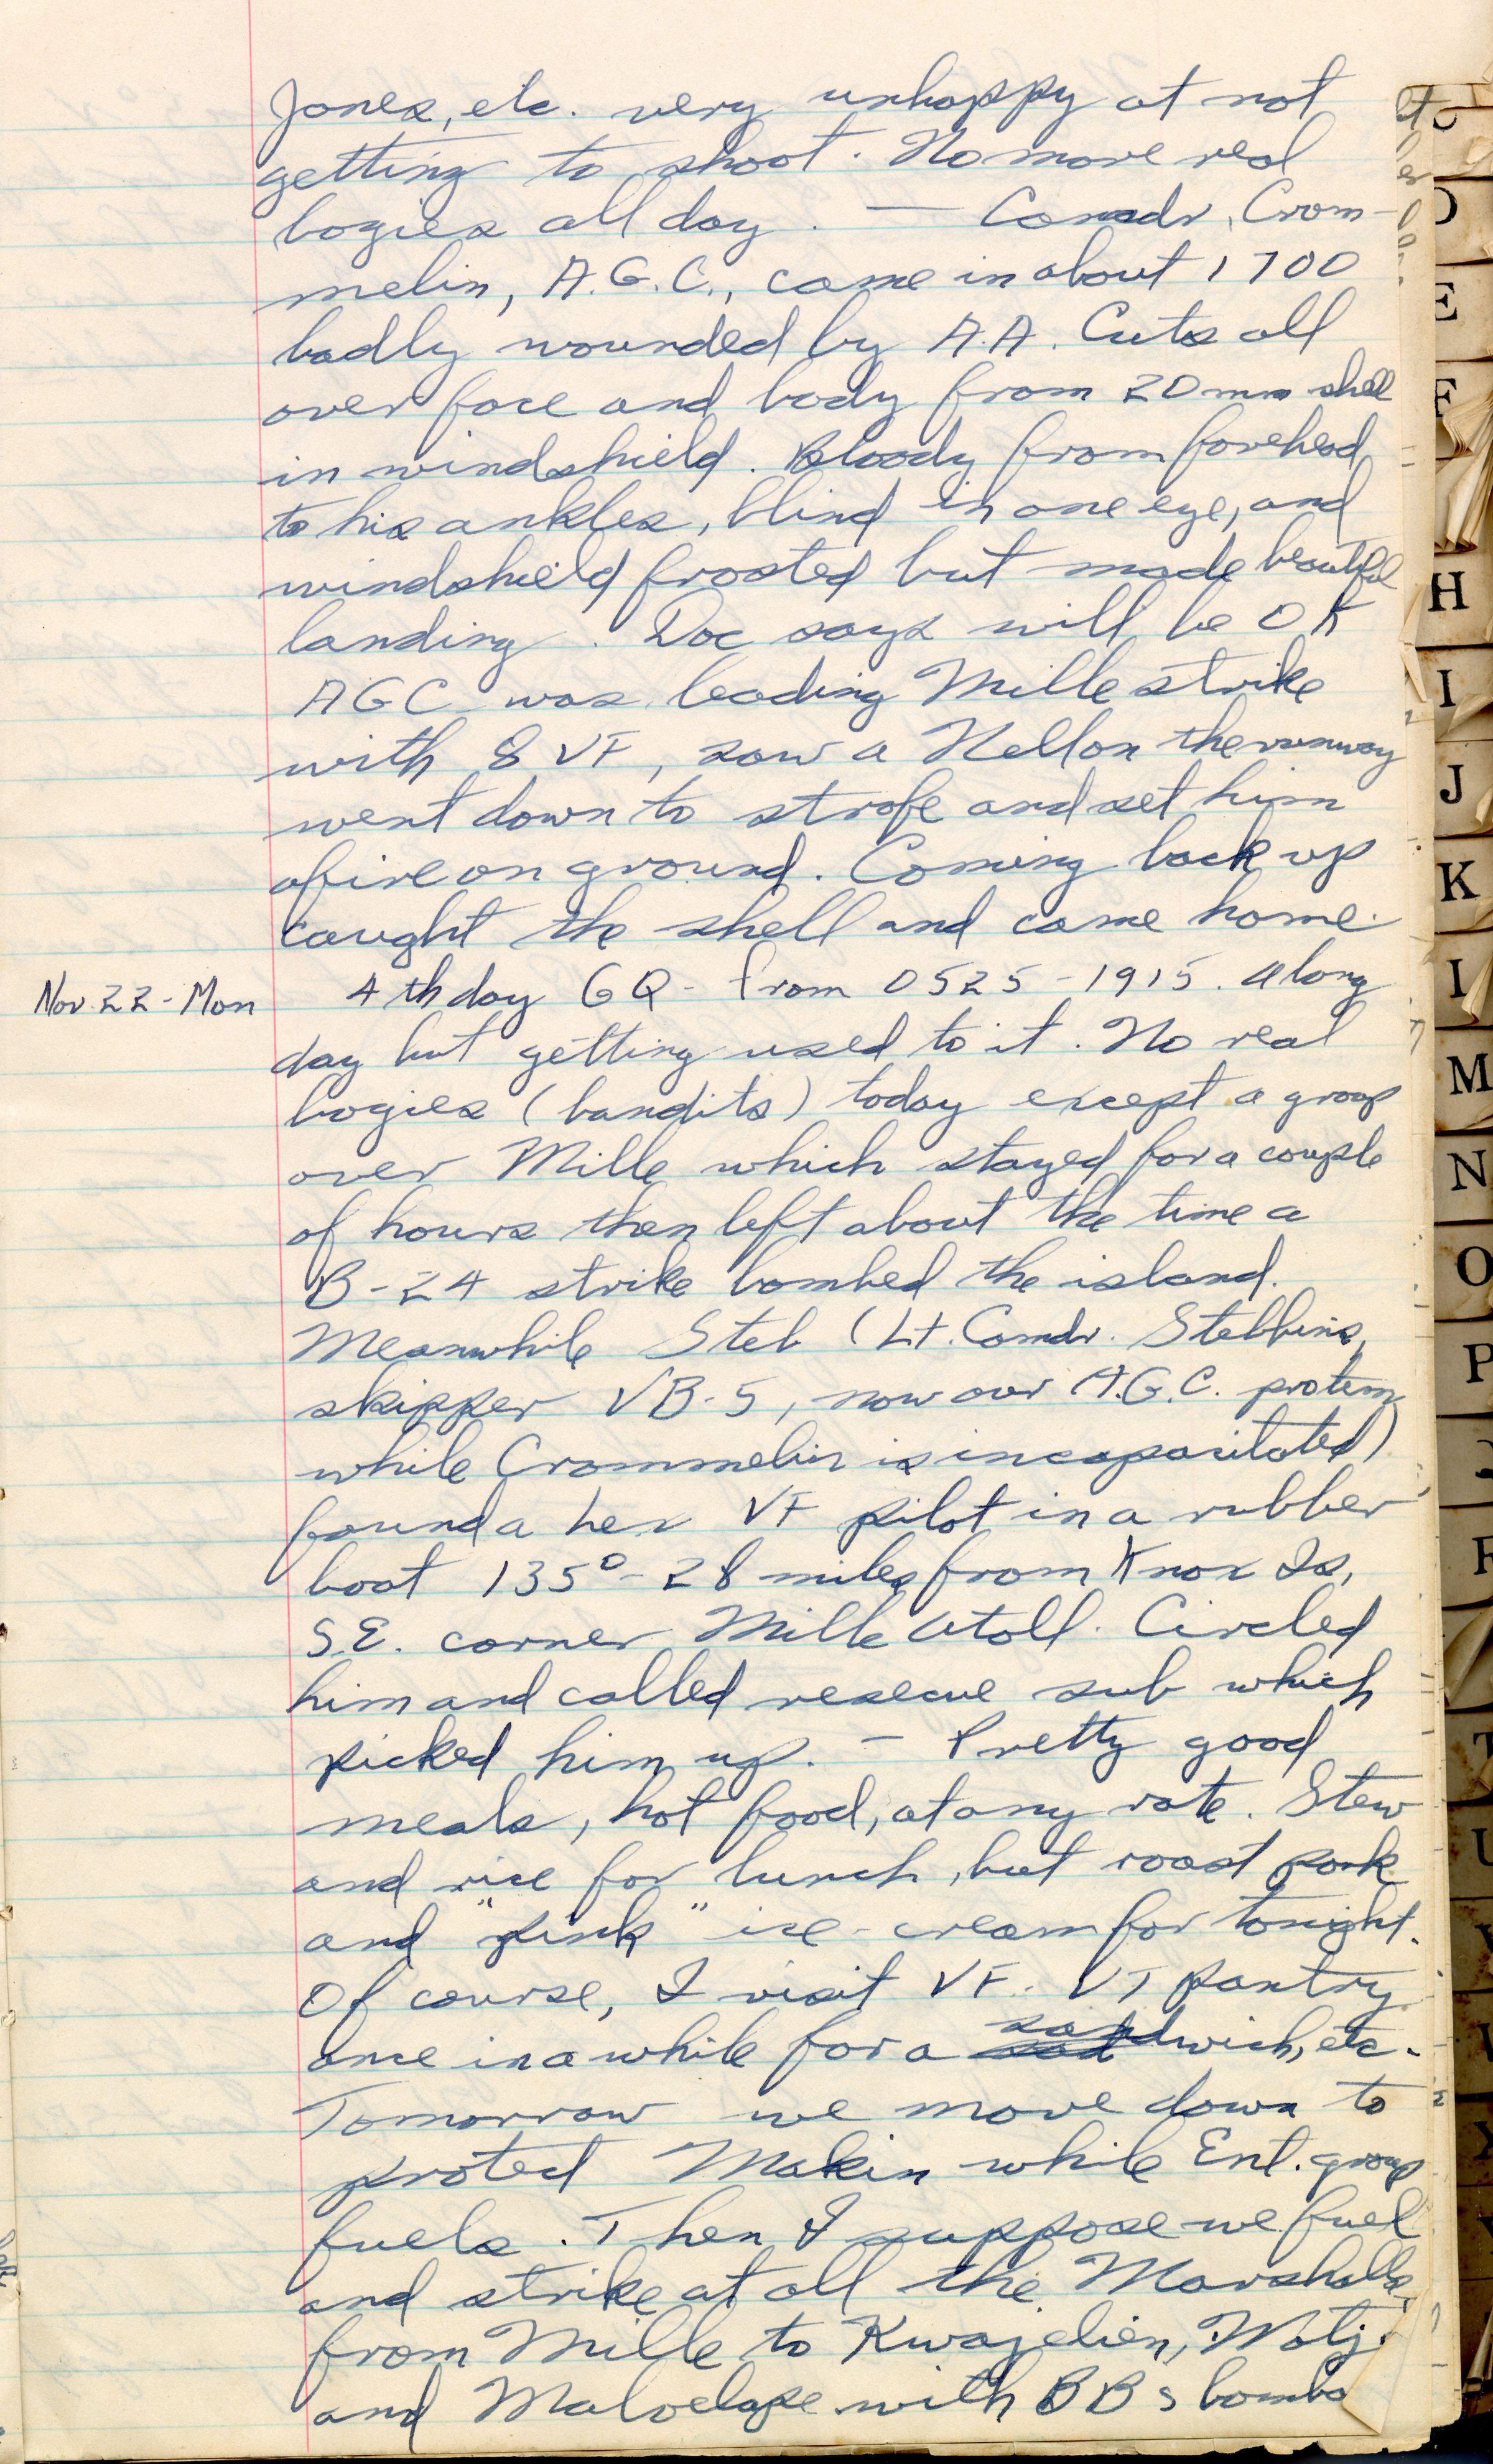 Jones, etc. very unhappy at not
getting to shoot. No more real
bogies all day. — Comdr. Crom-
melin, A.G.C., came in about 1700
badly wounded by A.A. Cuts all
over face and body from 20mm shell
in windshield. Bloody from forehead
to his ankles, blind in one eye, and
windshield frosted but made beautiful
landing. Doc says will be OK
AGC was leading Mille strike
with 8 VF, saw a Nell on the runway
went down to strafe and set him
afire on ground. Coming back up
caught the shell and came home.
Nov. 22 - Mon 4th day GQ - from 0525-1915. A long
day but getting used to it. No real
bogies (bandits) today except a group
over Mille which stayed for a couple
of hours then left about the time a
B-24 strike bombed the island.
Meanwhile Steb (Lt. Comdr. Stebbins,
skipper VB-5, now our A.G.C. protem
while Crommelin is incapacitated)
found a Lex VF pilot in a rubber
boat 135° - 28 miles from Knox Is,
S.E. corner Mille Atoll. Circled
him and called rescue sub which
picked him up. - Pretty good
meals, hot food, at any rate. Stew
and rice for lunch, but roast pork
and "pink" ice-cream for tonight.
Of course, I visit VF-VT pantry
once in a while for a sandwich, etc.
Tomorrow we move down to
protect Makin while Ent. group
fuels. Then I suppose we fuel
and strike at all the Marshalls,
from Mille to Kwajelien, Wotj.
and Maloelape with BBs bombs
E
H
I
J
K
M
N
O
P